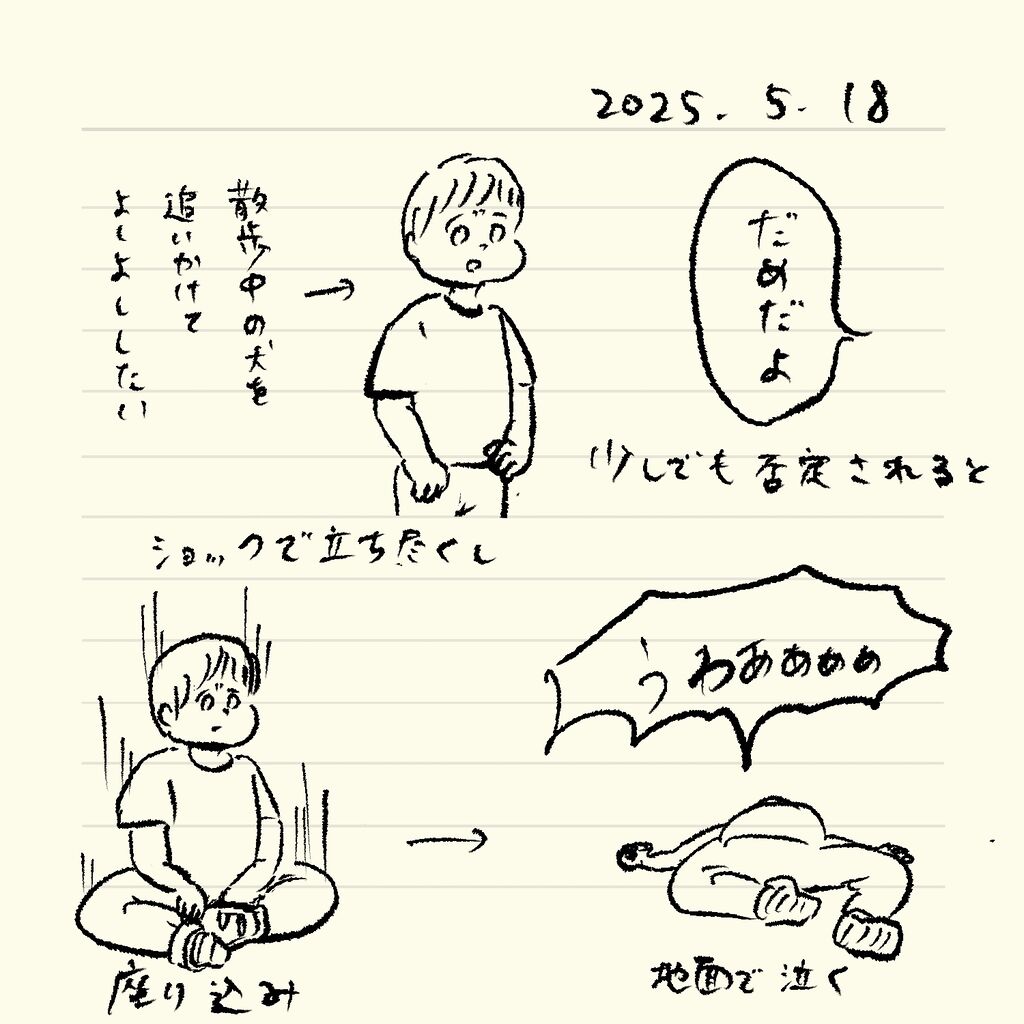 2025. 5. 18
散歩中の犬を
追いかけて
よしよししたい
→
だめだよ
少しでも否定されると
ショックで立ち尽くし
うわあぁぁぁ
座り込み
→
地面で泣く